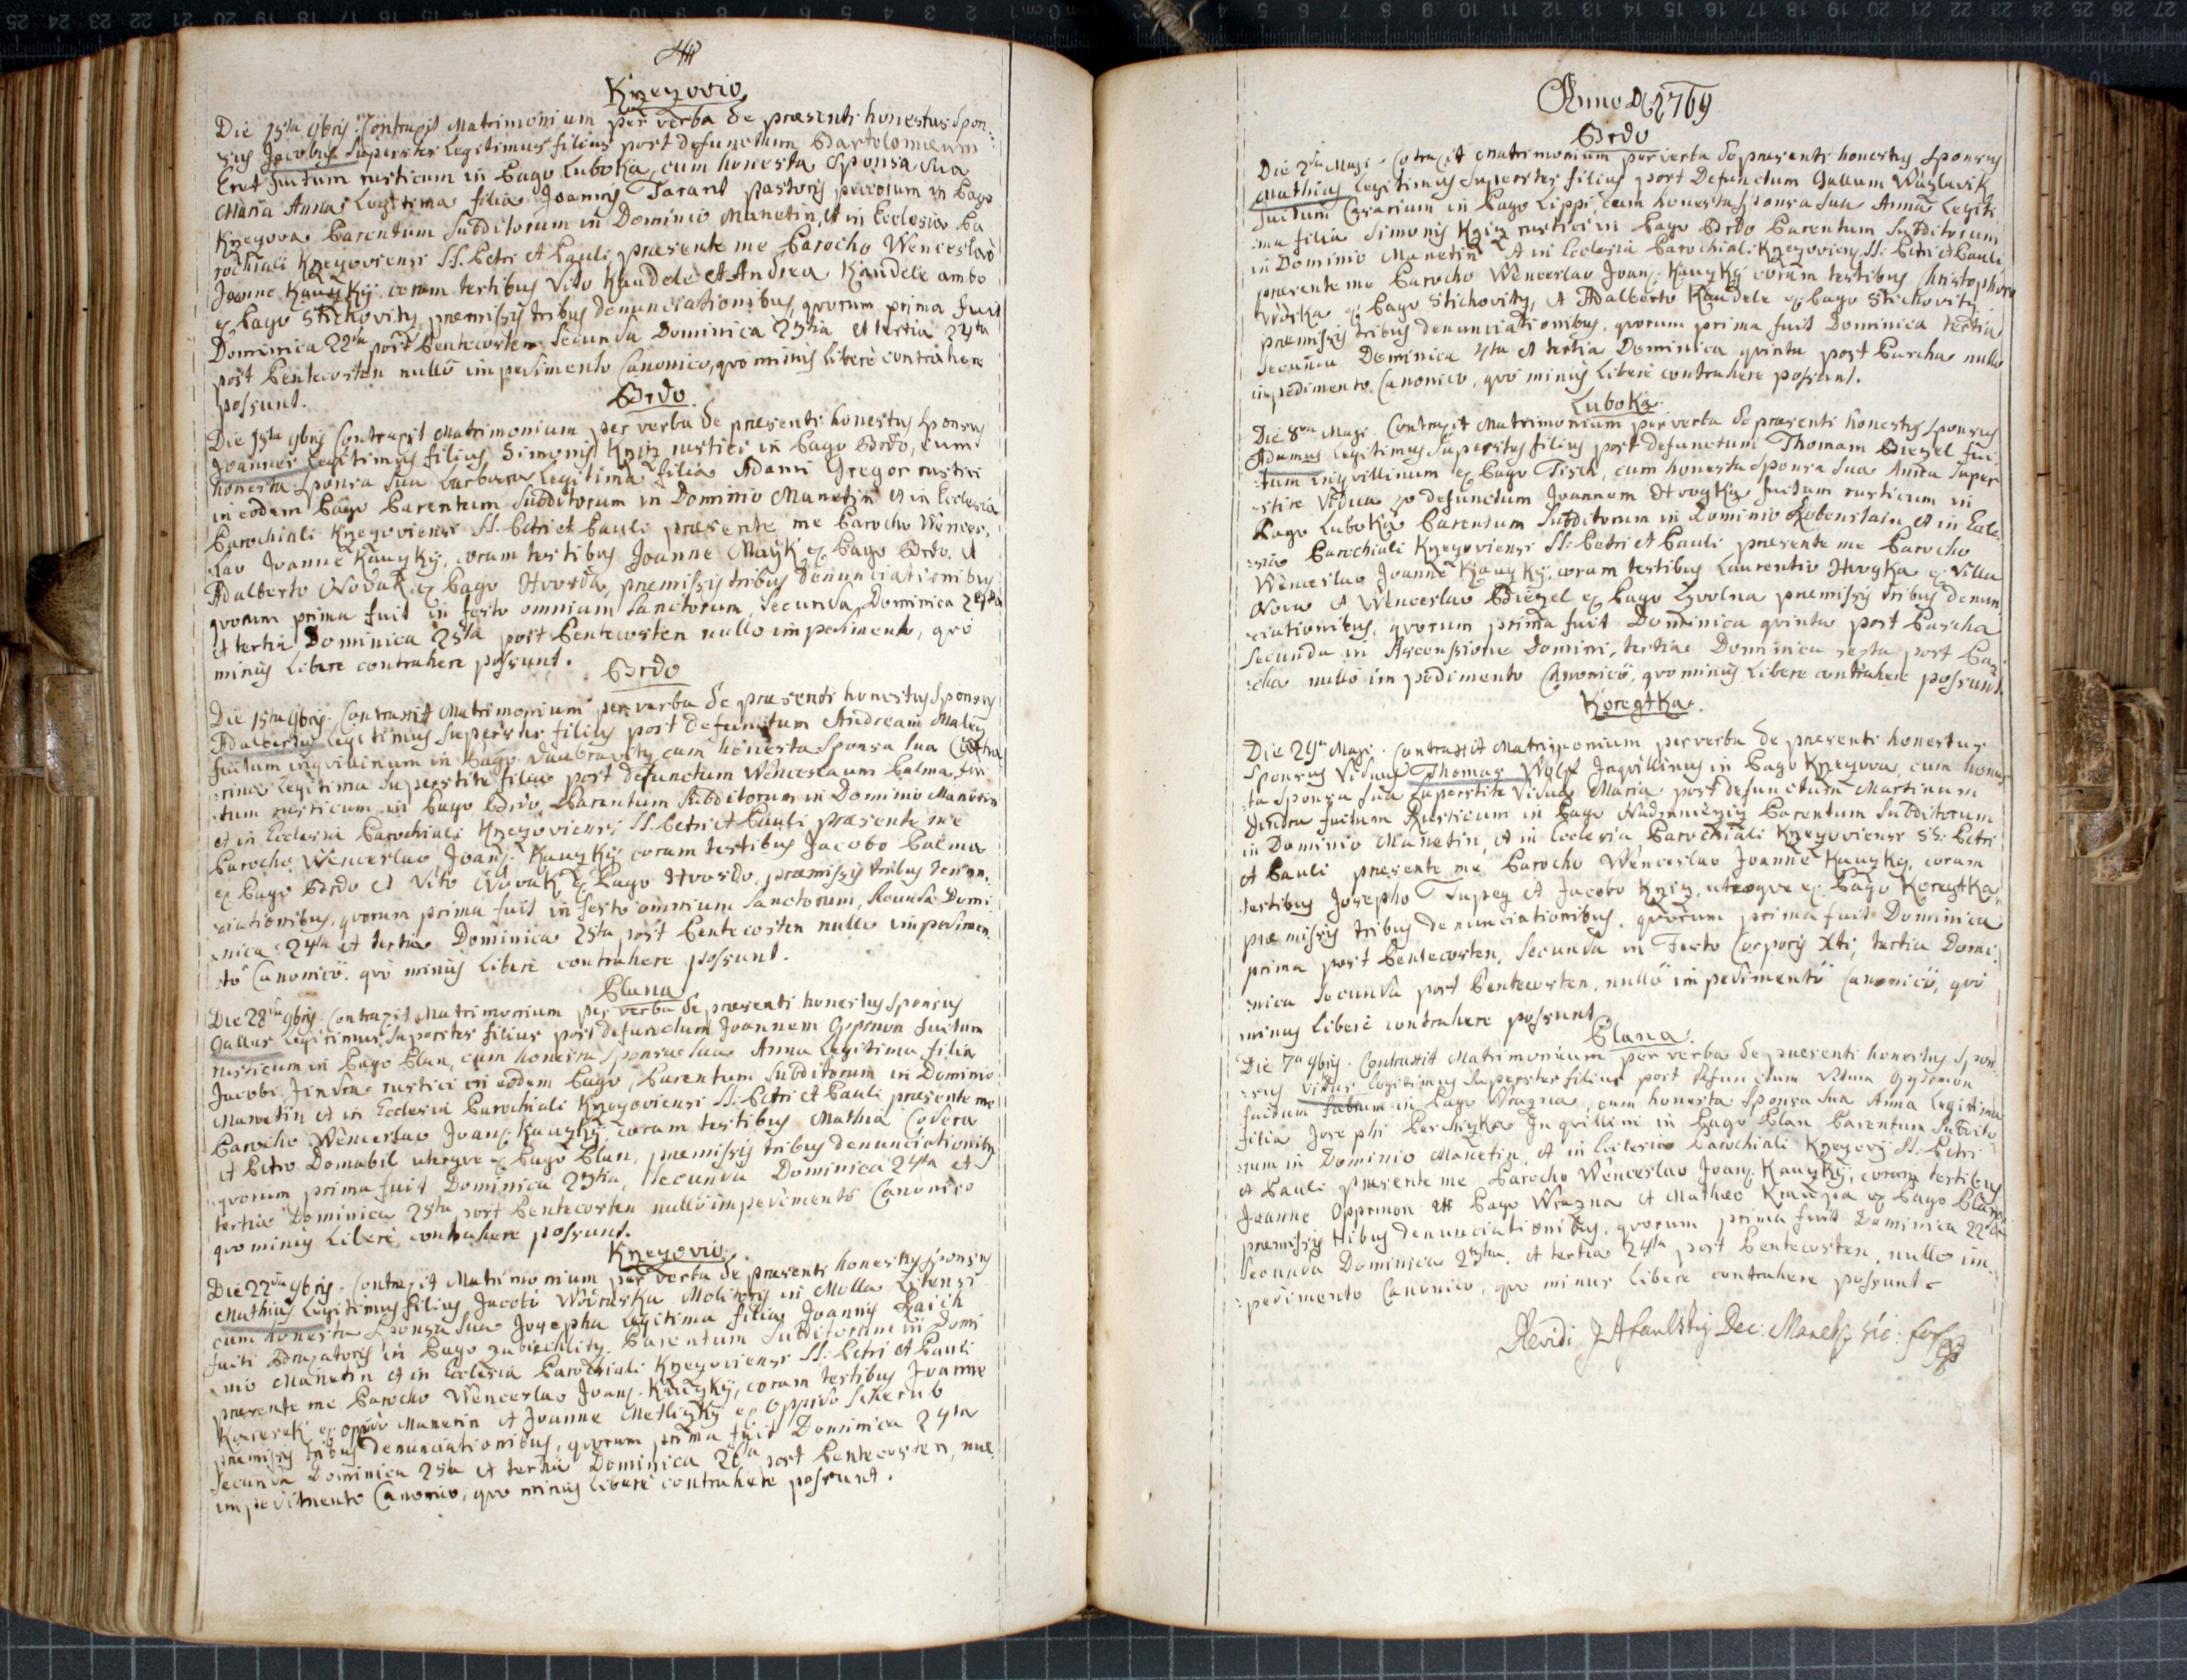 Knezovio
Die 15ta 9bris. Contraxit Matrimonium per verba de praesenti honestus Spon:
sus Jacobus Superstes Legitimus filius post defunctum Bartolomeum
fuitum rusticum in Pago Luboka, cum honesta Sponsa Sua
Maria Anna Legitima filia Joannis Tarant pastoris pecorum in Pago
Knezova Parentum Subditorum in Dominio Manetin, et in Ecclesia Pa
rochiali Knezoviensi SS. Petri et Pauli, praesente me Parocho Wenceslao
Joanne Kauzky, coram testibus Vito Kandele et Andrea Kandele ambo
ex Pago Stichovitz, praemissis tribus denunciationibus, qvorum prima fuit
Dominica 22da post Pentecosten Secunda Dominica 23tia et tertia 24ta
post Pentecosten nullo impedimento Canonico, qvo minus libere contrahere
possunt.
Brdo.
Die 15ta 9bris Contraxit Matrimonium per verba de praesenti honestus Sponsus
Joannes Legitimus filius Simonis Kniz rustici in Pago Brdo, cum
honesta Sponsa Sua Barbara Legitima filia Adami Gregor rustici
in eodem Pago Parentum Subditorum in Dominio Manetin et in Ecclesia
Parochiali Knezoviensi SS. Petri et Pauli praesente me Parocho Wences,
lao Joanne Kauzky, coram testibus Joanne Mayk ex Pago Brdo. et
Adalberto Novak ex Pago Hvozda, praemissis tribus denunciationibus
qvorum prima fuit in festo omnium Sanctorum, Secunda Dominica 24ta
et tertia Dominica 25ta post Pentecosten nullo impedimento, qvo
minus libere contrahere possunt.
Brdo
Die 15ta 9bris. Contraxit Matrimonium per verba de praesenti honestus Sponsus
Adalbertus Legitimus Superstes filius post defunctum Andream
fuitum inqvilinum in Pago cum honesta Sponsa sua
rina Legitima Superstite filia post defunctum Wenceslaum Palma fui
tum rusticum in Pago Brdo, Parentum Subditorum in Dominio Manetin
et in Ecclesia Parochiali Knezoviensi SS. Petri et Pauli praesente me
Parocho Wenceslao Joan: Kauzky coram testibus Jacobo Palma
ex Pago Brdo et Vito Novak ex Pago Hvozdo. praemissis tribus denun,
ciationibus, qvorum prima fuit in festo omnium Sanctorum, Secunda Domi
nica 24ta et tertia Dominica 25ta post Pentecosten nullo impedimen,
to Canonico. qvo minus libere contrahere possunt.
Plana
Die 22da 9bris. Contraxit Matrimonium per verba de praesenti honestus Sponsus
Gallus Legitimus Superstes filius post defunctum Joannem Opprmon fuitum
rusticum in Pago Plan, cum honesta Sponsa Sua Anna Legitima filia
Jacobi Jindra rustici in eodem Pago, Parentum Subditorum in Dominio
Manetin et in Ecclesia Parochiali Knezoviensi SS. Petri et Pauli praesente me
Parocho Wenceslao Joan: Kauzky coram testibus Mathia Codera
et Petro Domabil utrqve ex Pago Plan, praemissis tribus denunciationibus
qvorum prima fuit Dominica 23tia, Secunda Dominica 24ta et
tertia Dominica 25ta post Pentecosten nullo impedimento Canonico
qvo minus libere contrahere possunt.
Knezovio
Die 22da 9bris. Contraxit Matrimonium per verba de praesenti honestus Sponsus
Mathias Legitimus filius Jacobi Molitoris in Molla
cum honesta Sponsa Sua Josepha Legitima filia Joannis
fuiti in Pago Parentum Subditorum in Domi
nio Manetin et in Ecclesia Parochiali Knezoviensi SS. Petri et Pauli
praesente me Parocho Wenceslao Joan: Kauzky, coram testibus Joanne
ex oppido Manetin et Joanne Metlizky ex Oppido Scherub
praemissis tribus denunciationibus, qvorum prima fuit Dominica 24ta
Secunda Dominica 25ta et tertia Dominica 26ta post Pentecosten, nul
impedimento Canonico, qvo minus libere contrahere possunt.
Anno D 1769
Brdo
Die 2da Maji. Contraxit Matrimonium per verba de praesenti honestus Sponsus
Mathias Legitimus Superstes filius post Defunctum Gallum Waslavik
fuitum Casarium in Pago Lippi cum honesta Sponsa Sua Anna Legiti
ma filia Simonis Kniz rustici in Pago Brdo Parentum Subditorum
in Dominio Manetin et in Ecclesia Parochiali Knezoviens SS: Petri et Pauli
praesente me Parocho Wenceslao Joan: Kauzky coram testibus Christophoro
ex Pago Stichovitz, et Adalberto Kandele ex Pago Stichovitz
praemissis tribus denunciationibus, qvorum prima fuit Dominica tertia
Secunda Dominica 4ta et tertia Dominica qvinta post Pascha nullo
impedimento Canonico, qvo minus libere contrahere possunt.
Luboka.
Die 8va Maji. Contraxit Matrimonium per verba de praesenti honestus Sponsus
Adamus Legitimus Superstes filius post defunctum Thomam Biezel fui
tum inqvillinum ex Pago Tisch, cum honesta Sponsa Sua Anna Super
stite Vidua post defunctum Joannem Hrozka fuitum rusticum in
Pago Luboka Parentum Subditorum in Dominio Lobenstain et in Eccle
sia Parochiali Knezoviensi SS: Petri et Pauli praesente me Parocho
Wenceslao Joanne Kauzky, coram testibus Laurentio Hrozka ex Villa
Nova et Wenceslao Biezel ex Pago Zwolna praemissis tribus denun
ciationibus, qvorum prima fuit Dominica qvinta post Pascha
Secunda in Ascensione Domini, tertia Dominica sexta post Pas
cha nullo impedimento Canonico, qvo minus libere contrahere possunt.
Koreztka.
Die 29na Maji. Contraxit Matrimonium per verba de praesenti honestus
Sponsus Viduus Thomas Wolf Inqvillinus in Pago Knezova, cum hones
ta Sponsa sua Superstite Vidua Maria post defunctum Martinum
Jindra fuitum Rusticum in Pago Parentum Subditorum
in Dominio Manetin, et in Ecclesia Parochiali Knezoviensi SS: Petri
et Pauli praesente me Parocho Wenceslao Joanne Kauzky, coram
testibus Josepho Tupez et Jacobo Kniz, utroqve ex Pago Koreztka,
praemissis tribus denunciationibus, qvorum prima fuit Dominica
prima post Pentecosten, Secunda in Festo Corporis Xti, tertia Domi:
nica Secunda post Pentecosten, nullo impedimento Canonico, qvo
minus libere contrahere possunt
Plana.
Die 7a 9bris. Contraxit Matrimonium per verba de praesenti honestus Spon
sus Vitus Legitimus Superstes filius post defunctum Vitum Opprmon
fuitum fabrum in Pago Wrazna, cum honesta Sponsa Sua Anna Legitima
filia Josephi Inqvillini in Pago Plan Parentum Subdito
rum in Dominio Manetin, et in Ecclesia Parochiali Knezovij SS: Petri
et Pauli praesente me Parocho Wenceslao Joan: Kauzky, coram testibus
Joanne Opprmon ex Pago Wrazna et Mathaeo ex Pago Plan
praemissis tribus denunciationibus, qvorum prima fuit Dominica 22da
Secunda Dominica 23tia. et tertia 24ta post Pentecosten, nullo im,
pedimento Canonico, qvo minus libere contrahere possunt.
Revidi Dec: Vic: for: